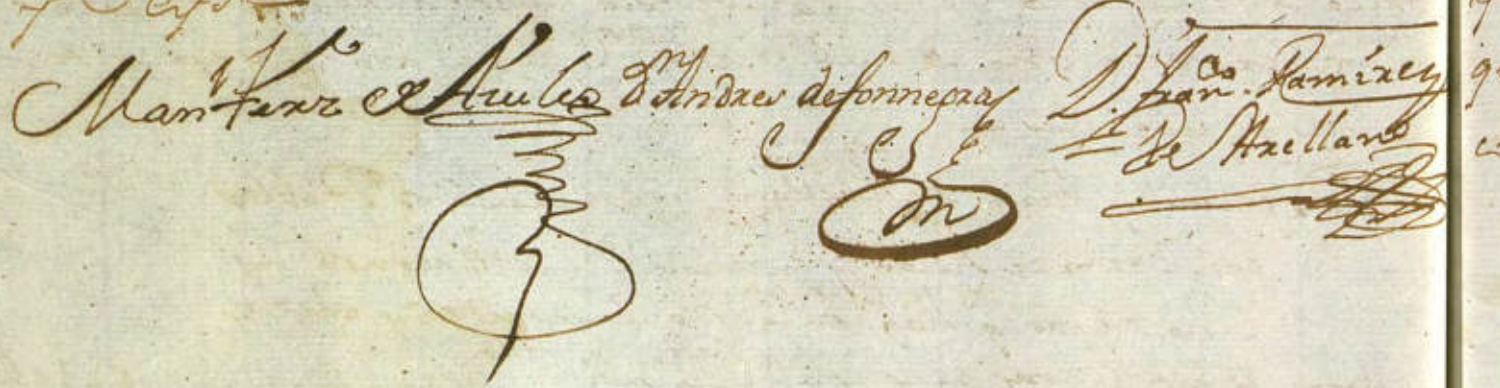 Man.l Fern.z de Aruleo D.n Andres defonnegra D. Fran.co Ramirez
de Arellano